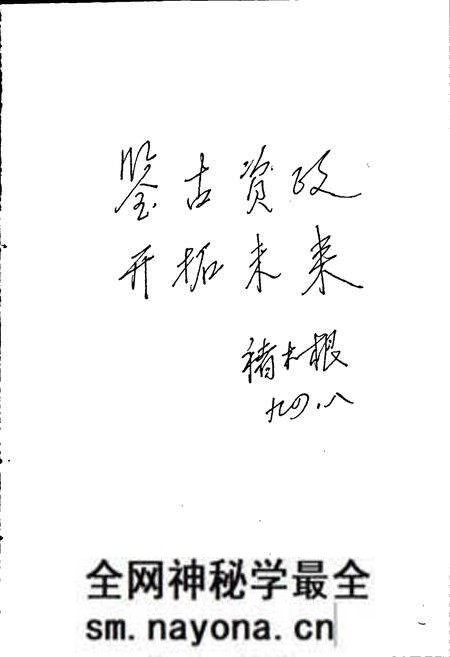 鉴古资政
开拓未来
褚木根
九四.八
全网神秘学最全
sm.nayona.cn